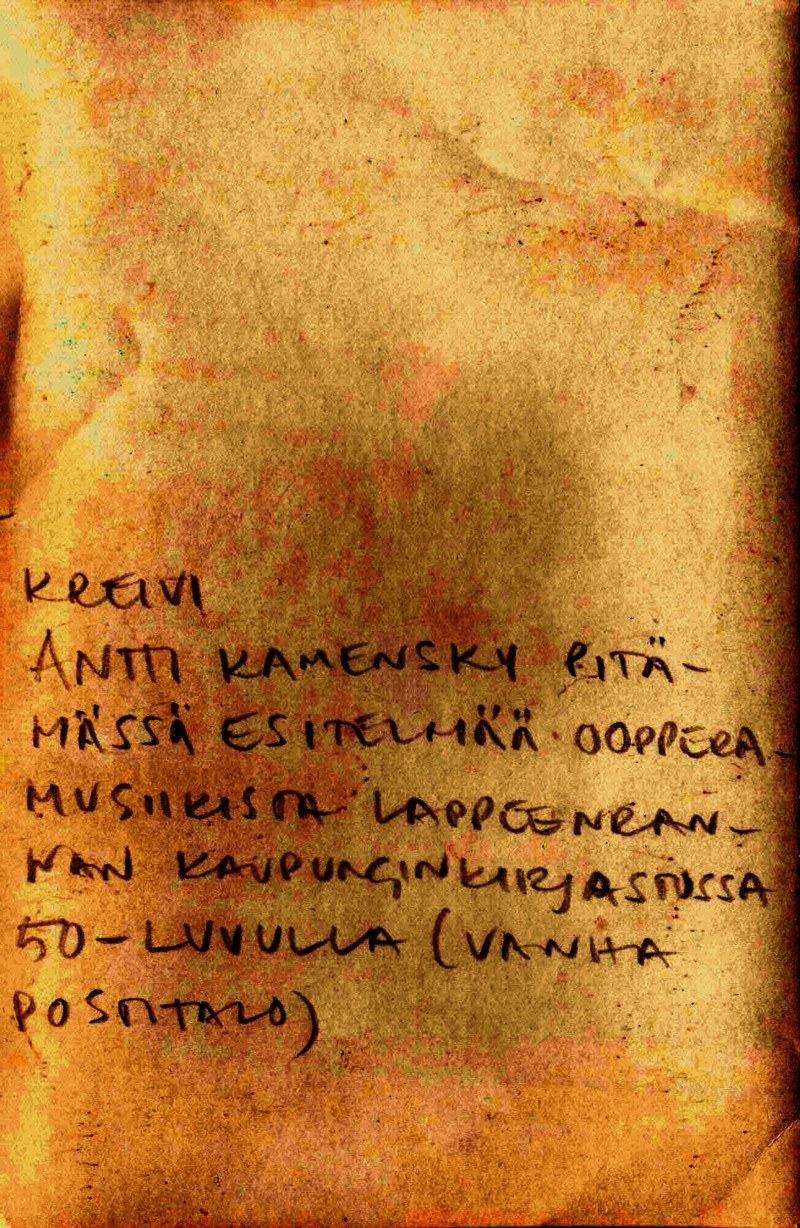 KREIVI
ANTTI KAMENSKY PITÄ-
MÄSSÄ ESITELMÄÄ OOPPERA-
MUSIIKISTA LAPPEENRAN-
NAN KAUPUNGINKIRJASTOSSA
50-LUVULLA (VANHA
POSTITALO)